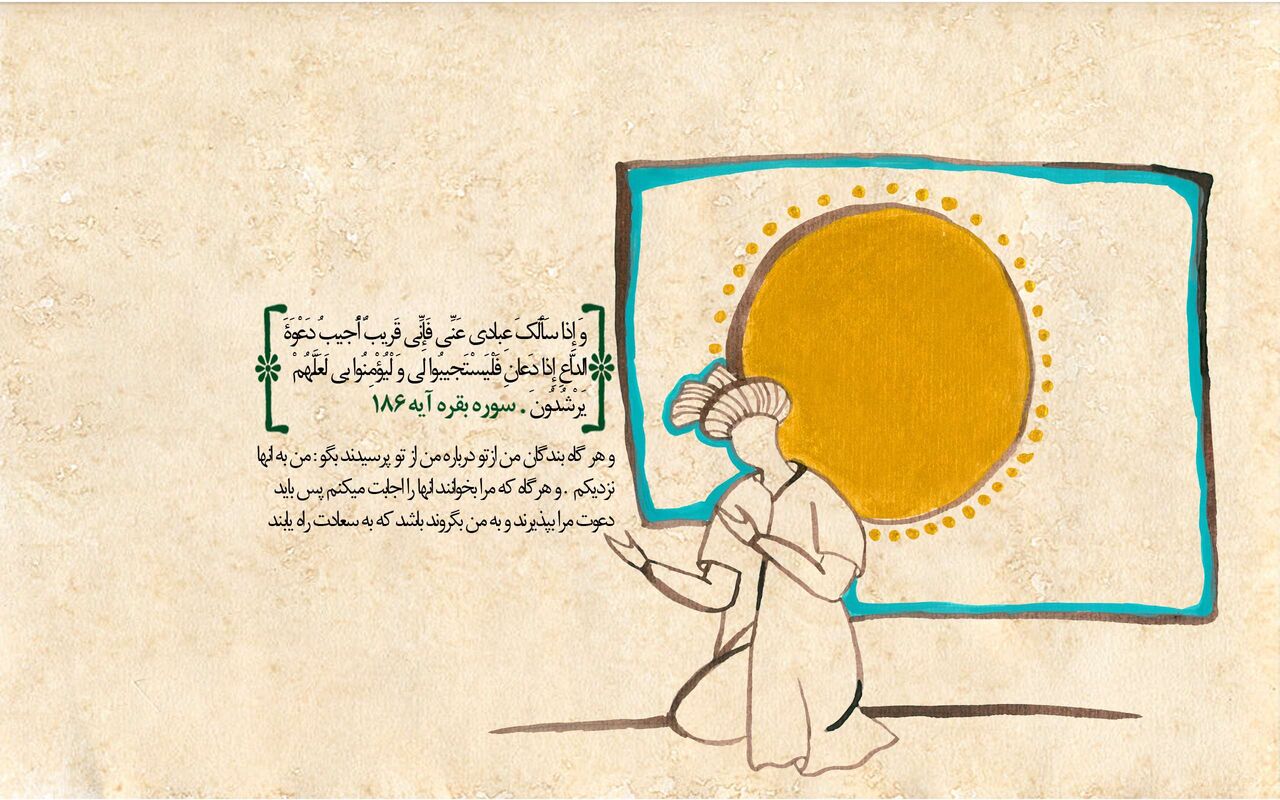 وَ إِذا سَأَلَکَ عِبادی عَنِّی فَإِنِّی قَریبٌ أُجیبُ دَعْوَةَ
الدَّاعِ إِذا دَعانِ فَلْیَسْتَجیبُوا لی وَ لْیُؤْمِنُوا بی لَعَلَّهُمْ
یَرْشُدُونَ . سوره بقره آیه ۱۸۶
و هر گاه بندگان من از تو درباره من از تو پرسیدند بگو : من به انها
نزدیکم . و هر گاه که مرا بخوانند انها را اجابت میکنم پس باید
دعوت مرا بپذیرند و به من بگروند باشد که به سعادت راه یابند